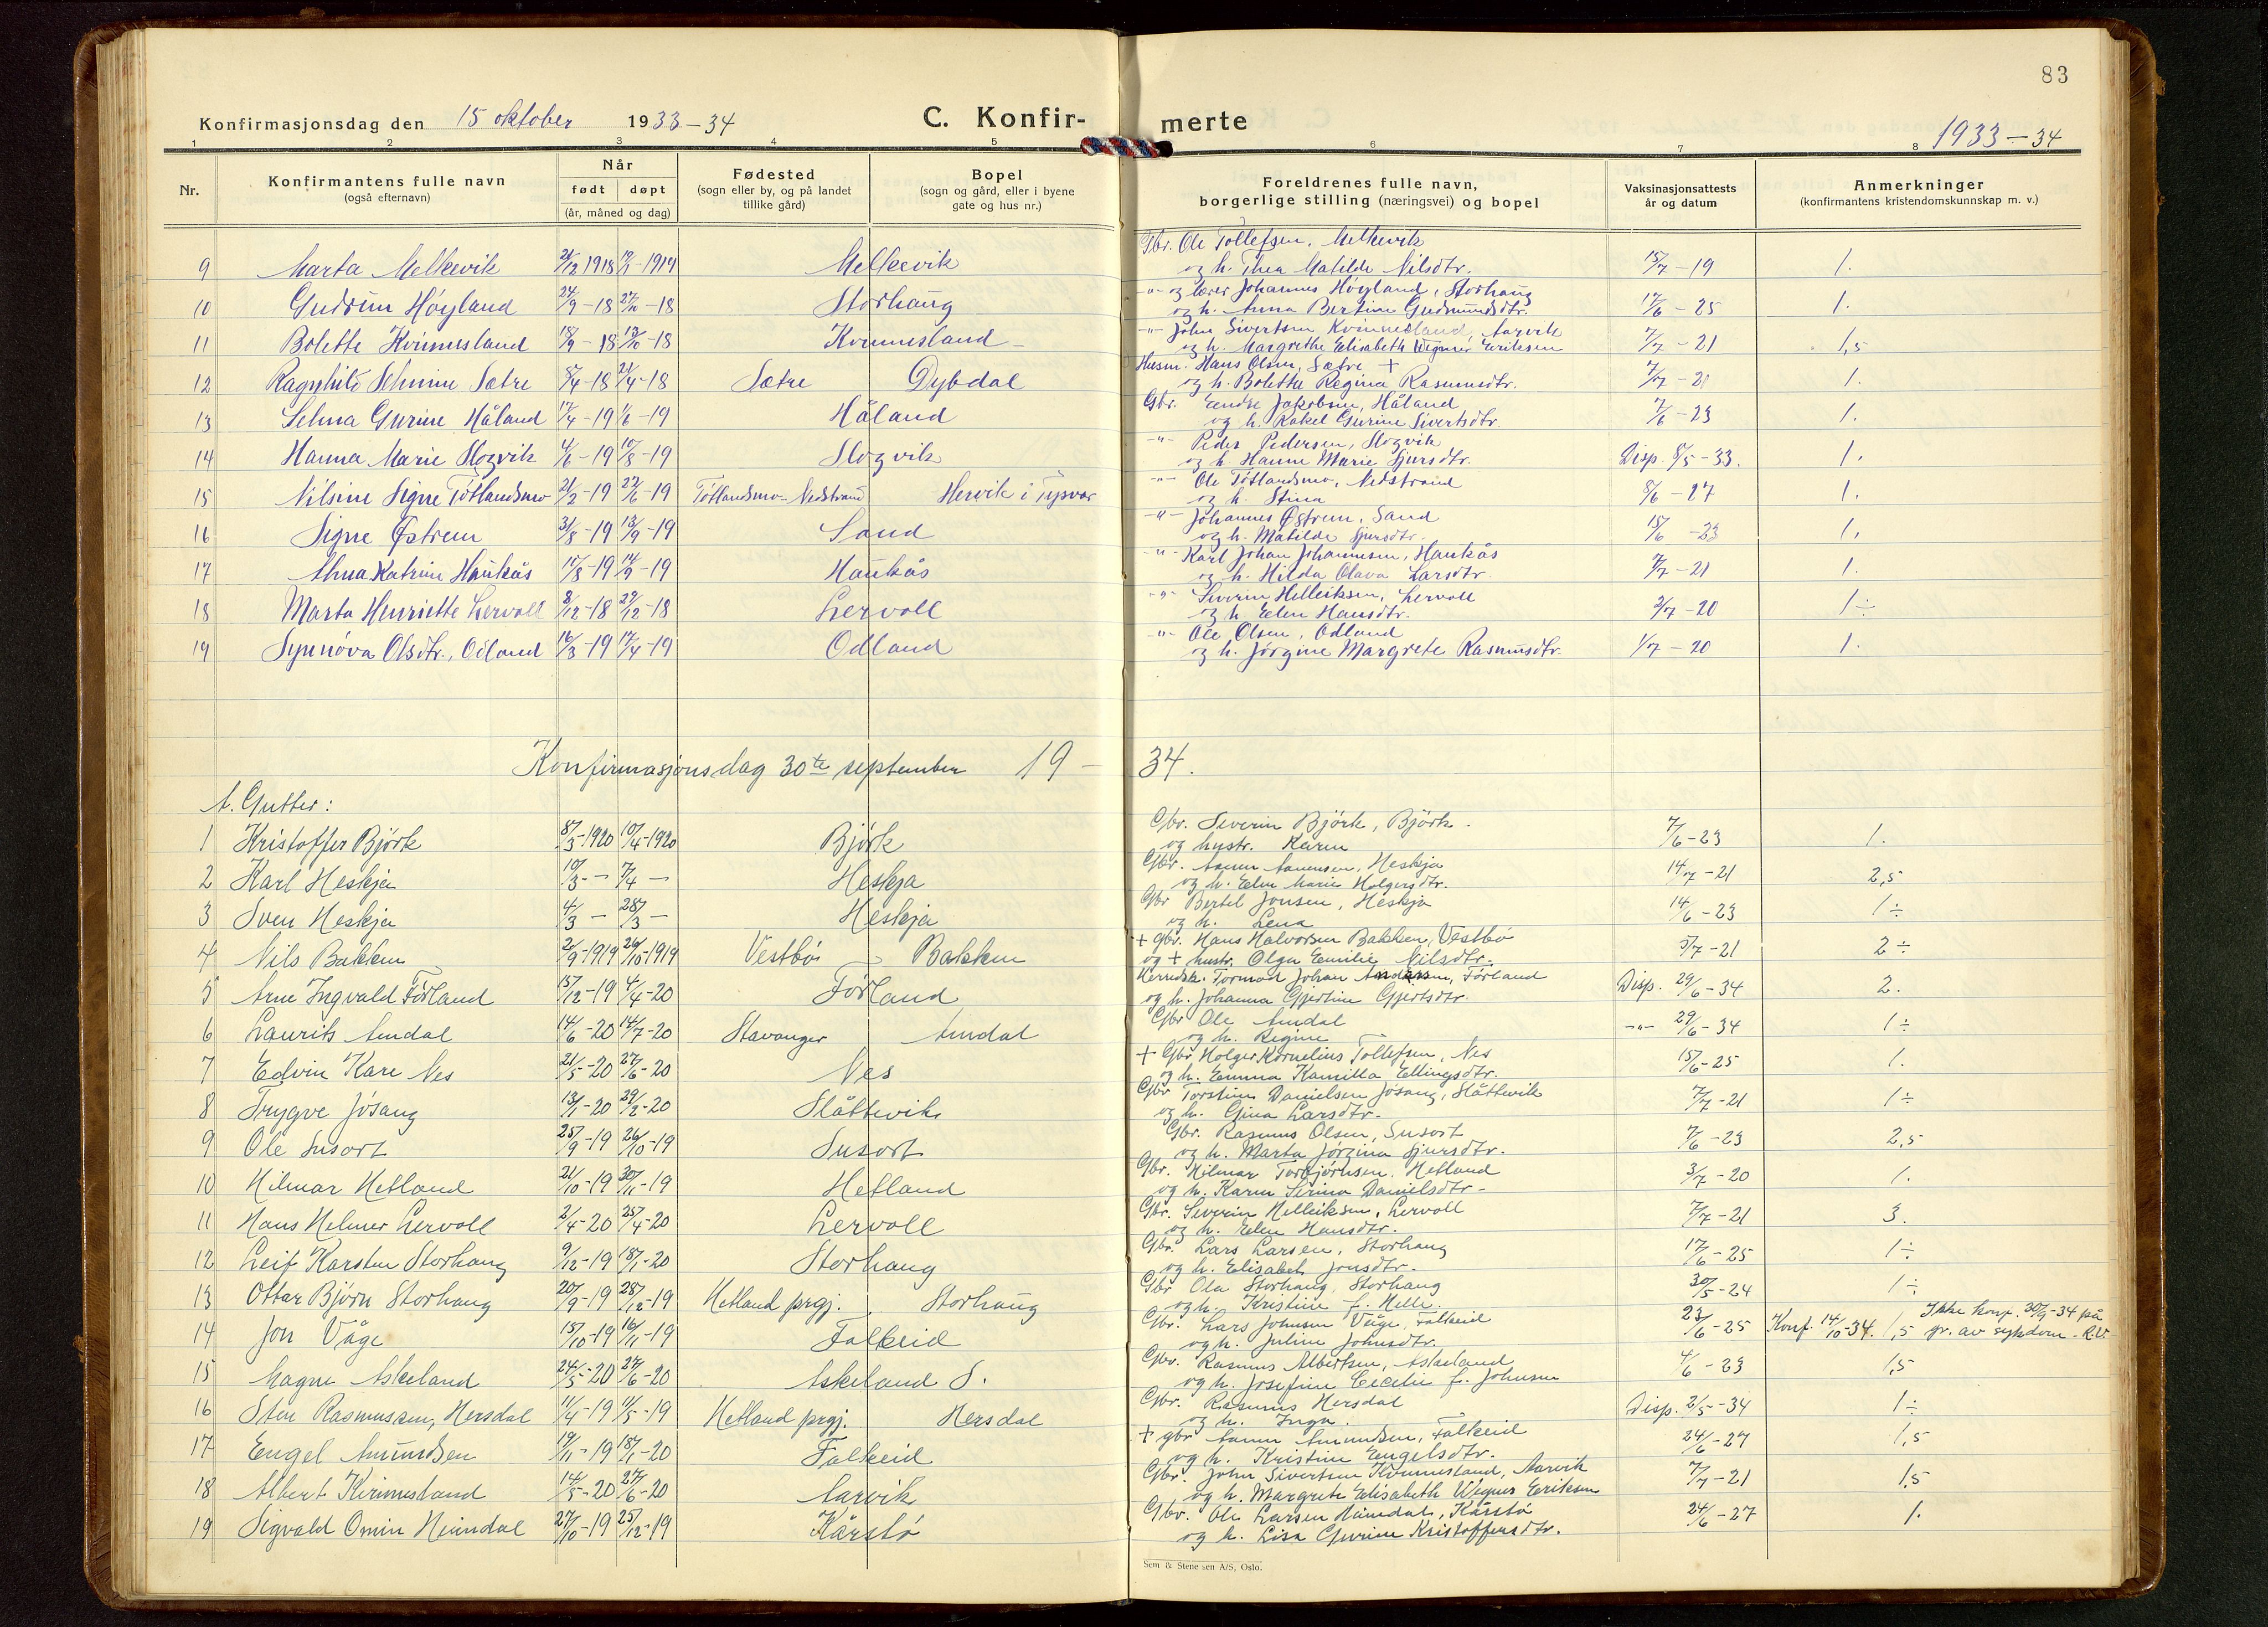 83
Konfirmasjonsdag den 15 oktober 1933-34 C. Konfir- merte 1933-34
1 2 3 4 5 6 7 8
Nr. Konfirmantens fulle navn (også efternavn) Når født døpt (år, måned og dag) Fødested (sogn eller by, og på landet tillike gård) Bopel (sogn og gård, eller i byene gate og hus nr.) Foreldrenes fulle navn, borgerlige stilling (næringsvei) og bopel Vaksinasjonsattests år og datum Anmerkninger (konfirmantens kristendomskunnskap m. v.)
Gbr. Ole Tollefsen, Melkevik
9 Marta Melkevik 1918 1919 Melkevik og h. Thea Matilde Nilsdtr. 15/7-19 1.
-"- og lærer Johannes Høyland, Storhaug
10 Gudrun Høyland 24/9-18 27/10-18 Storhaug og h. Anna Bertine Gudmundsdtr. 17/6-25 1.
-"- John Sivertsen Kvinnesland, Aarvik
11 Bolette Kvinnesland 18/9-18 13/10-18 Kvinnesland og h. Margrethe Elisabeth Wegner Eriksen 7/7-21 1,5
Husm. Hans Olsen, Sætre +
12 Ragnhild Selmine Sætre 8/4-18 21/4-18 Sætre Dybdal og h. Bolette Regina Rasmusdtr. 7/7-21 1.
Gbr. Endre Jakobsen, Håland
13 Selma Gurine Håland 17/4-19 1/6-19 Håland og h. Rakel Gurine Sivertsdtr. 7/6-23 1.
-"- Peder Pedersen, Slogvik
14 Hanna Marie Slogvik 4/6-19 10/8-19 Slogvik og h. Hanne Marie Sjursdtr. Disp. 8/5-33. 1.
-"- Ole Tøtlandsmo, Nedstrand
15 Nilsine Signe Tøtlandsmo 21/2-19 22/6-19 Tøtlandsmo-Nedstrand Hervik i Tysvær og h. Stina 8/6-27 1.
-"- Johannes Østrem, Sand
16 Signe Østrem 31/8-19 13/9-19 Sand og h. Matilde Sjursdtr. 15/6-23 1.
-"- Karl Johan Johannesen, Haukås
17 Alma Katrine Haukås 11/8-19 14/9-19 Haukås og h. Hilda Olava Larsdtr. 7/7-21 1.
-"- Severin Helleiksen, Lervoll
18 Marta Henriette Lervoll 8/12-18 29/12-18 Lervoll og h. Elen Hansdtr. 2/7-20 1÷
-"- Ole Olsen, Odland
19 Synnøva Olsdtr., Odland 16/3-19 17/4-19 Odland og h. Jørgine Margrete Rasmusdtr. 1/7-20 1.
Konfirmasjonsdag 30te september 19-34.
A. Gutter:
Gbr. Severin Bjørk, Bjørk.
1 Kristoffer Bjørk 8/3-1920 10/4-1920 Bjørk og hustr. Karen 7/6-23 1.
Gbr. Aanen Aanensen, Heskja
2 Karl Heskja 10/3 - - 7/4 - Heskja og h. Elen Marie Holgersdtr. 14/7-21 2,5
Gbr Bertel Jonsen, Heskja
3 Sven Heskja 4/3 - 28/3 - Heskja og h. Lena 14/6-23 1÷
+ gbr. Hans Halvorsen Bakken, Vestbø
4 Nils Bakken 2/9-1919 26/10-1919 Vestbø - Bakken og + hustr. Olga Emilie Nilsdtr. 5/7-21 2÷
Herredsk. Tormod Johan Andersen, Førland
5 Arne Ingvald Førland 15/12-19 4/4-20 Førland og h. Johanna Gjertine Gjertsdtr. Disp. 29/6-34 2.
Gbr Ole Amdal
6 Laurits Amdal 14/6-20 14/7-20 Stavanger Amdal og h. Regine -"- 29/6-34 1÷
+ Gbr Holger Kornelius Tollefsen, Nes
7 Edvin Kåre Nes 21/5-20 27/6-20 Nes og h. Emma Kamilla Ellingsdtr. 15/6-25 1.
Gbr Torstein Danielsen Jøsang, Slåttevik
8 Trygve Jøsang 13/1-20 29/2-20 Slåttevik og h. Gina Larsdtr. 7/7-21 1÷
Gbr. Rasmus Olsen, Susort
9 Ole Susort 25/9-19 26/10-19 Susort og h. Marta Jørgina Sjursdtr. 7/6-23 2,5
Gbr. Hilmar Torbjørnsen, Hetland
10 Hilmar Hetland 21/10-19 30/11-19 Hetland og h. Karen Serina Danielsdtr. 3/7-20 1.
Gbr. Severin Helleiksen, Lervoll
11 Hans Helmer Lervoll 2/4-20 25/4-20 Lervoll og h. Elen Hansdtr. 7/7-21 3.
Gbr. Lars Larsen, Storhaug
12 Leif Karsten Storhaug 9/12-19 18/1-20 Storhaug og h. Elisabet Jonsdtr. 17/6-25 1÷
Gbr Ola Storhaug, Storhaug
13 Ottar Bjørn Storhaug 20/9-19 28/12-19 Hetland prgj. Storhaug og h. Kristine f. Helle. 30/5-24 1÷
Gbr. Lars Johnsen Våge, Falkeid
14 Jon Våge 15/10-19 16/11-19 Falkeid og h. Juline Johnsdtr. 23/6-25 Konf. 14/10-34. 1,5 Ikke konf. 30/9-34 på gr. av sykdom. R.V.
Gbr. Rasmus Albertsen, Askeland
15 Magne Askeland 24/5-20 27/6-20 Askeland S. og h. Josefine Cecelie f. Johnsen 4/6-23 1,5
Gbr. Rasmus Hersdal
16 Sten Rasmussen, Hersdal 11/4-19 11/5-19 Hetland prgj. Hersdal og h. Inga. Disp. 2/5-34 1÷
+ gbr Aanen Amundsen, Falkeid
17 Engel Amundsen 19/11-19 18/1-20 Falkeid og h. Kristine Engelsdtr. 24/6-27 1,5
Gbr. John Sivertsen Kvinnesland, Aarvik
18 Albert Kvinnesland 14/5-20 27/6-20 Aarvik og h. Margrete Elisabeth Wegner Eriksen 7/7-21 1,5
Gbr. Ole Larsen Heimdal, Kårstø
19 Sigvald Omin Heimdal 27/10-19 25/12-19 Kårstø og h. Lisa Gurine Kristoffersdtr. 24/6-27 1.
Sem & Stenersen A/S, Oslo.